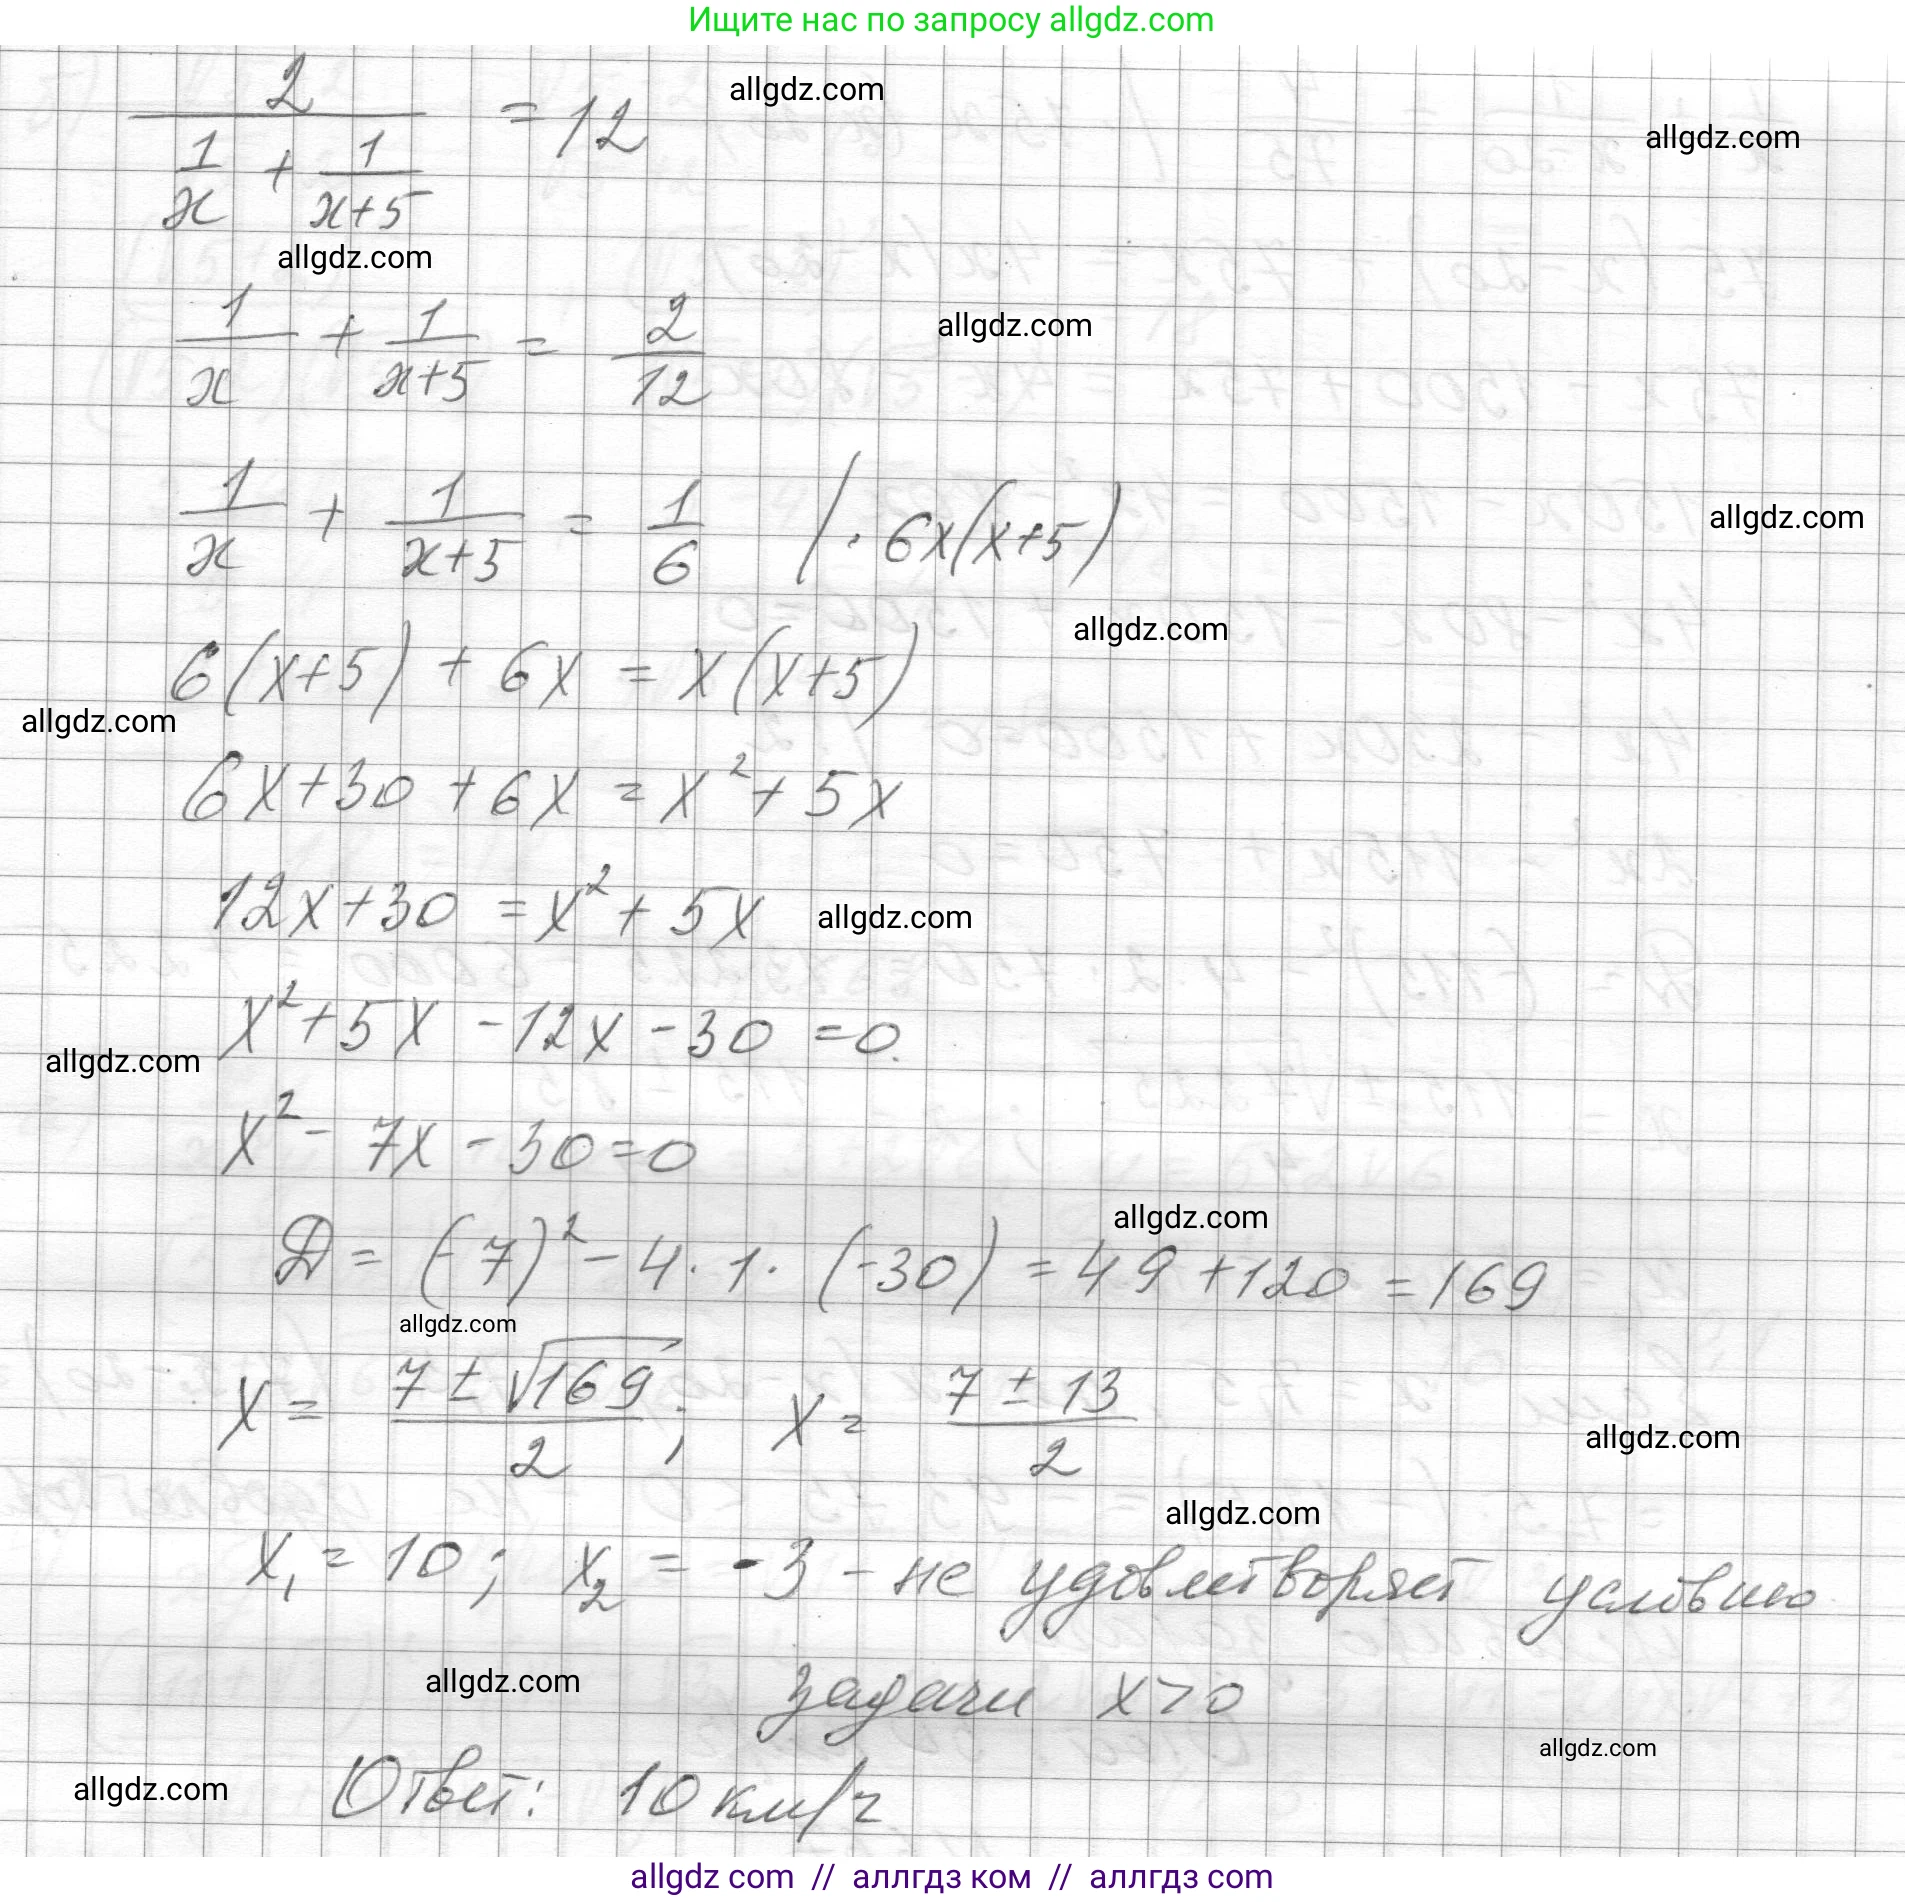 Ищите нас по запросу allgdz.com
2 / (1/x + 1/(x+5)) = 12
allgdz.com
allgdz.com
allgdz.com
1/x + 1/(x+5) = 2/12
allgdz.com
1/x + 1/(x+5) = 1/6 | · 6x(x+5)
allgdz.com
allgdz.com
6(x+5) + 6x = x(x+5)
allgdz.com
6x+30 + 6x = x² + 5x
12x+30 = x² + 5x
allgdz.com
x² + 5x - 12x - 30 = 0.
allgdz.com
x² - 7x - 30 = 0
allgdz.com
D = (-7)² - 4 · 1 · (-30) = 49 + 120 = 169
allgdz.com
x = (7 ± √169)/2 ; x = (7 ± 13)/2
allgdz.com
allgdz.com
x₁ = 10 ; x₂ = -3 - не удовлетворяет условию
allgdz.com
задачи x > 0
allgdz.com
allgdz.com
Ответ: 10 км/ч
allgdz com // аллгдз ком // аллгдз com